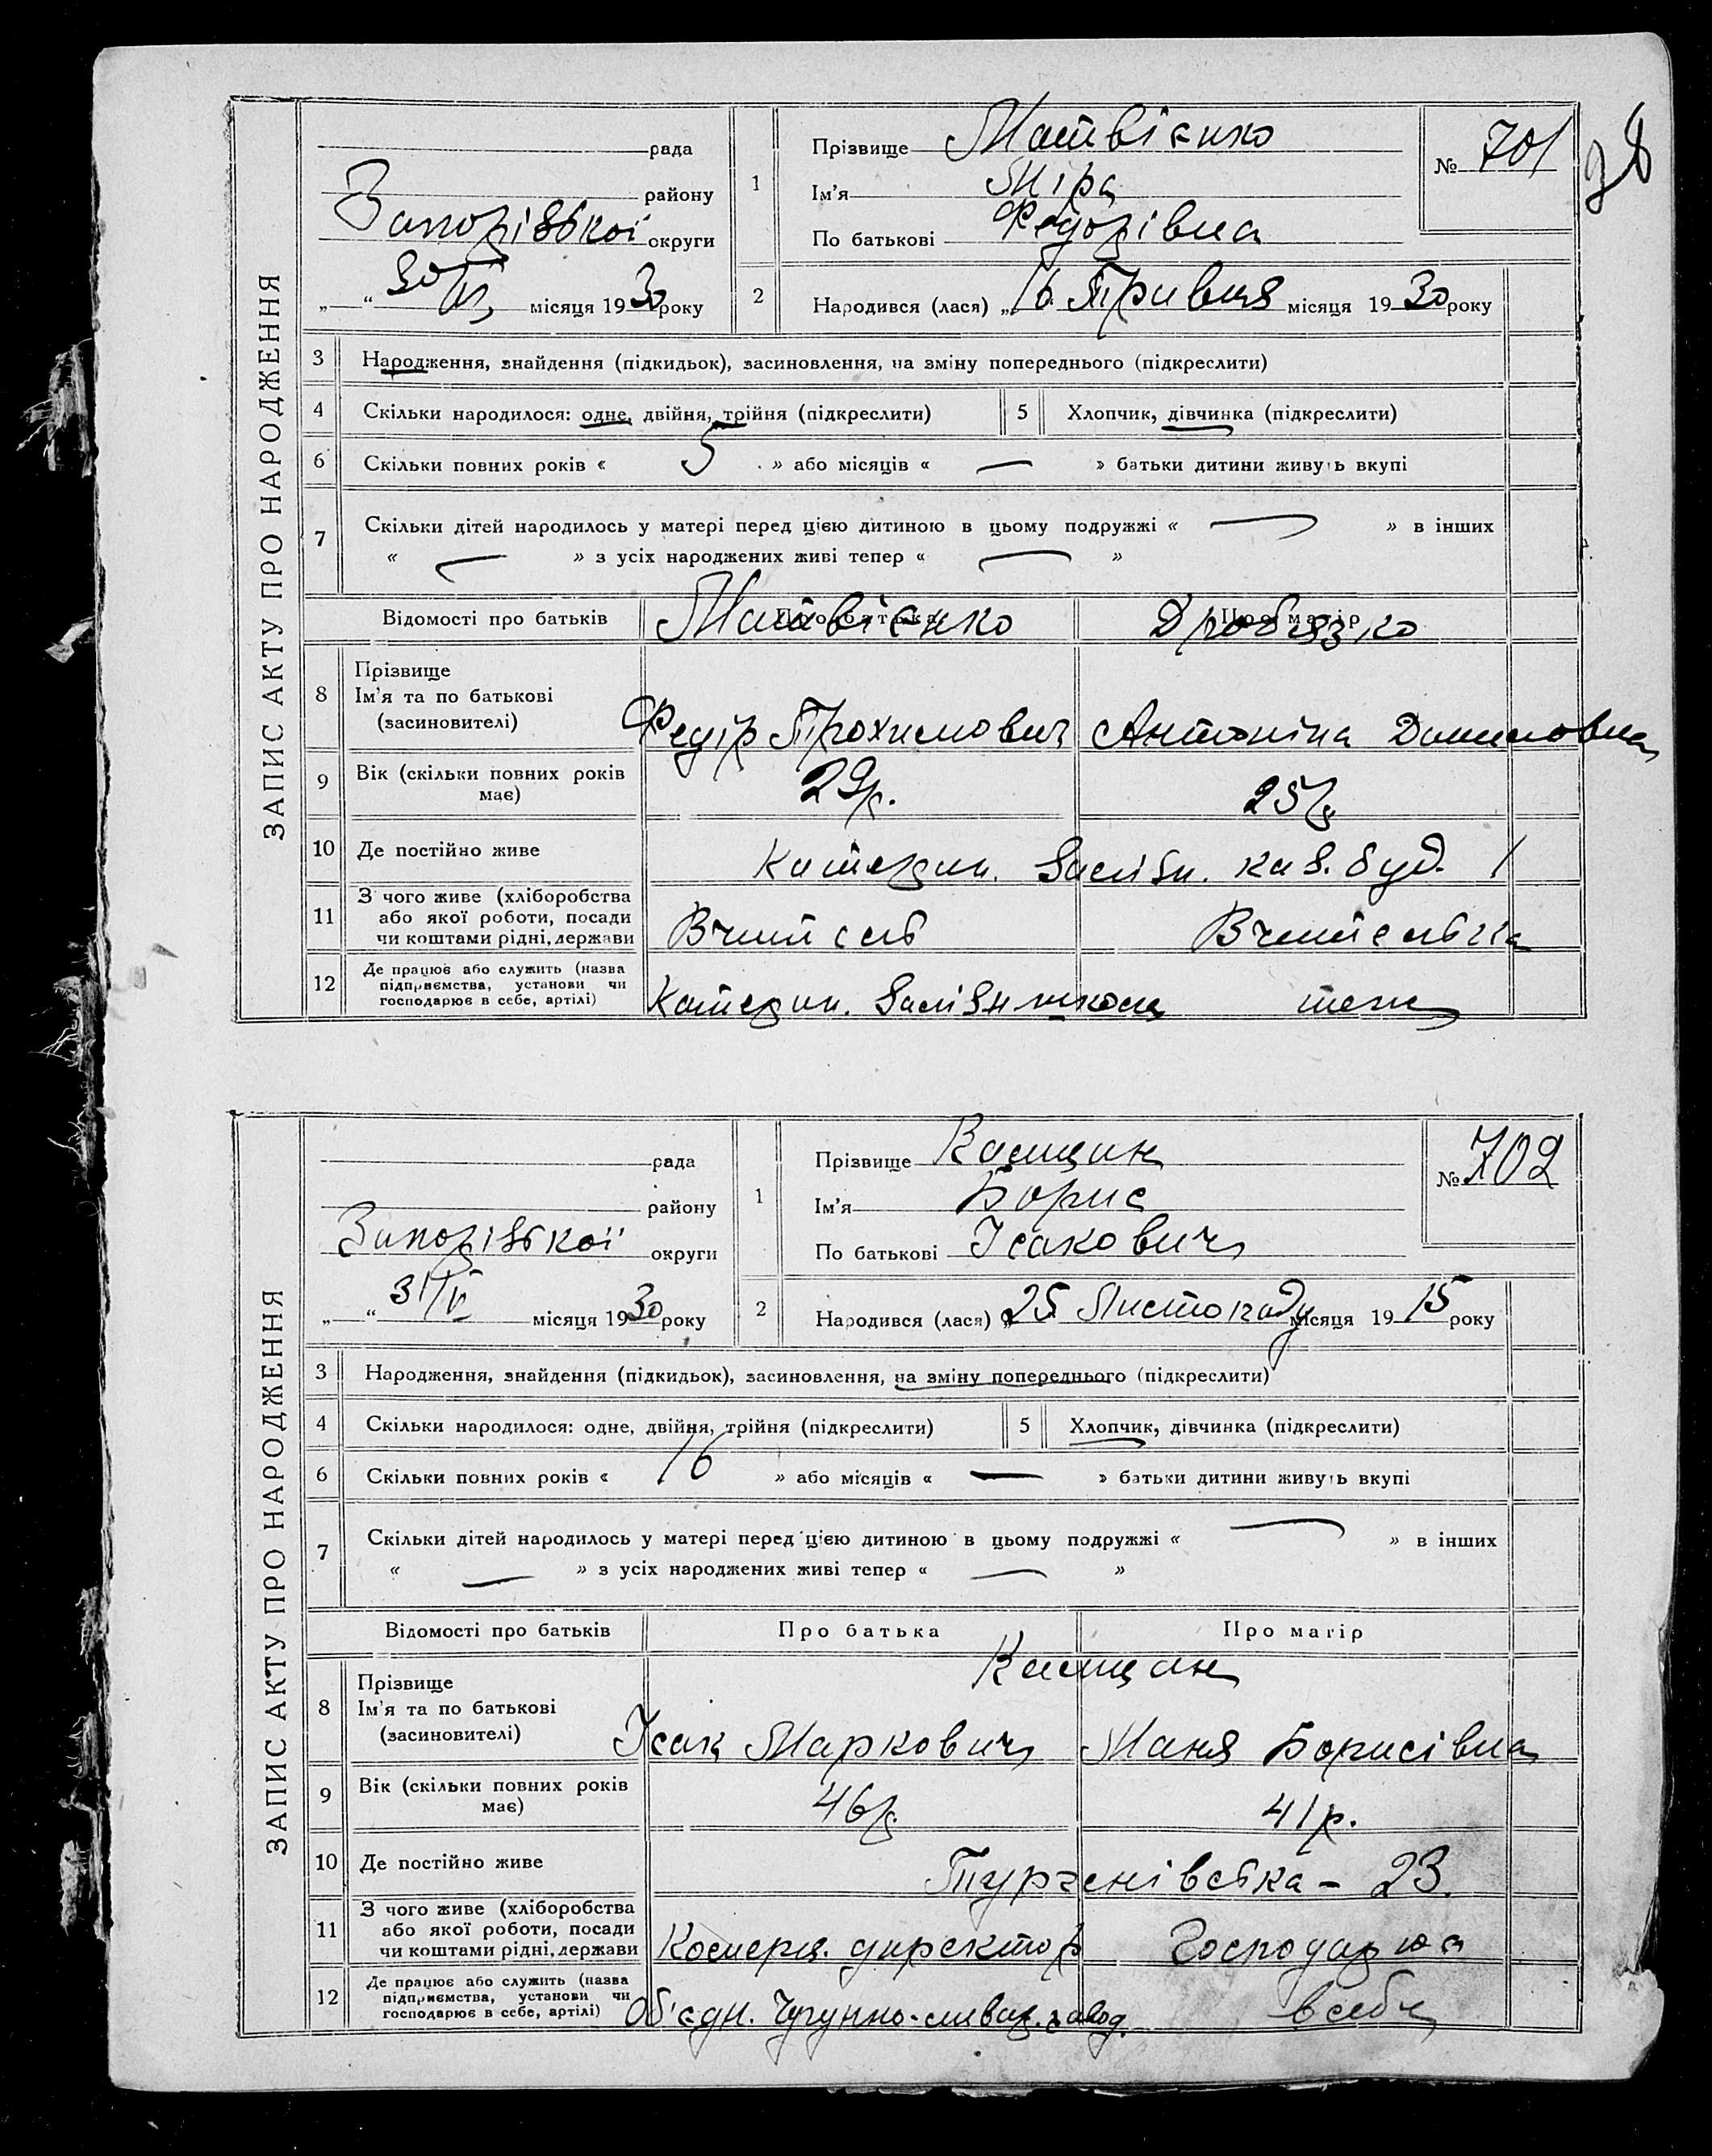 38
ЗАПИС АКТУ ПРО НАРОДЖЕННЯ
рада
району
Запорізької округи
„ “ 30/V місяця 1930 року
1 Прізвище Матвієнко
Ім'я Міра
По батькові Федорівна
№ 701
2 Народився (лася) „16 Травня місяця 1930 року
3 Народження, знайдення (підкидьок), засиновлення, на зміну попереднього (підкреслити)
4 Скільки народилося: одне, двійня, трійня (підкреслити) 5 Хлопчик, дівчинка (підкреслити)
6 Скільки повних років « 5 » або місяців « — » батьки дитини живуть вкупі
7 Скільки дітей народилось у матері перед цією дитиною в цьому подружжі « — » в інших
« — » з усіх народжених живі тепер « — »
Відомості про батьків Про батька Про матір
Матвієнко Дробязко
8 Прізвище
Ім'я та по батькові
(засиновителі)
Федір Трохимович Антоніна Даниловна
9 Вік (скільки повних років має) 29р. 25р.
10 Де постійно живе Катерин. Залізн. каз. буд. 1
11 З чого живе (хліборобства
або якої роботи, посади
чи коштами рідні, держави
Вчитель Вчителька
12 Де працює або служить (назва
підприємства, установи чи
господарює в себе, артілі)
Катерин. Залізн школа теж
ЗАПИС АКТУ ПРО НАРОДЖЕННЯ
рада
району
Запорізької округи
„ “ 31/V місяця 1930 року
1 Прізвище
Ім'я Борис
По батькові Ісакович
№ 702
2 Народився (лася) „25 Листопаду місяця 1915 року
3 Народження, знайдення (підкидьок), засиновлення, на зміну попереднього (підкреслити)
4 Скільки народилося: одне, двійня, трійня (підкреслити) 5 Хлопчик, дівчинка (підкреслити)
6 Скільки повних років « 16 » або місяців « — » батьки дитини живуть вкупі
7 Скільки дітей народилось у матері перед цією дитиною в цьому подружжі « — » в інших
« — » з усіх народжених живі тепер « — »
Відомості про батьків Про батька Про матір
8 Прізвище
Ім'я та по батькові
(засиновителі)
Ісак Маркович Маня Борисівна
9 Вік (скільки повних років має) 46р. 41р.
10 Де постійно живе Тургенівська - 23.
11 З чого живе (хліборобства
або якої роботи, посади
чи коштами рідні, держави
Комерц. директор Господарює
12 Де працює або служить (назва
підприємства, установи чи
господарює в себе, артілі)
Об'єдн. Чугунно-ливар. завод. в себе